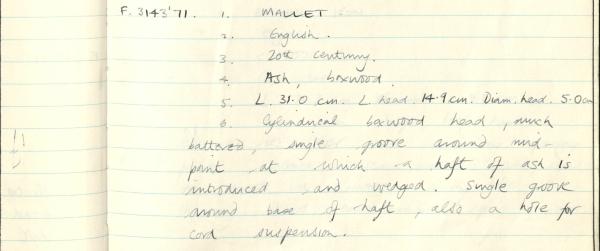 F. 3143'71. 1. MALLET
2. English.
3. 20th century.
4. Ash, boxwood.
5. L. 31.0 cm. L head. 14.9 cm. Diam. head. 5.0 cm
6. Cylindrical boxwood head, much
battered, single groove around mid-
point at which a haft of ash is
introduced and wedged. Single groove
around base of haft, also a hole for
cord suspension.